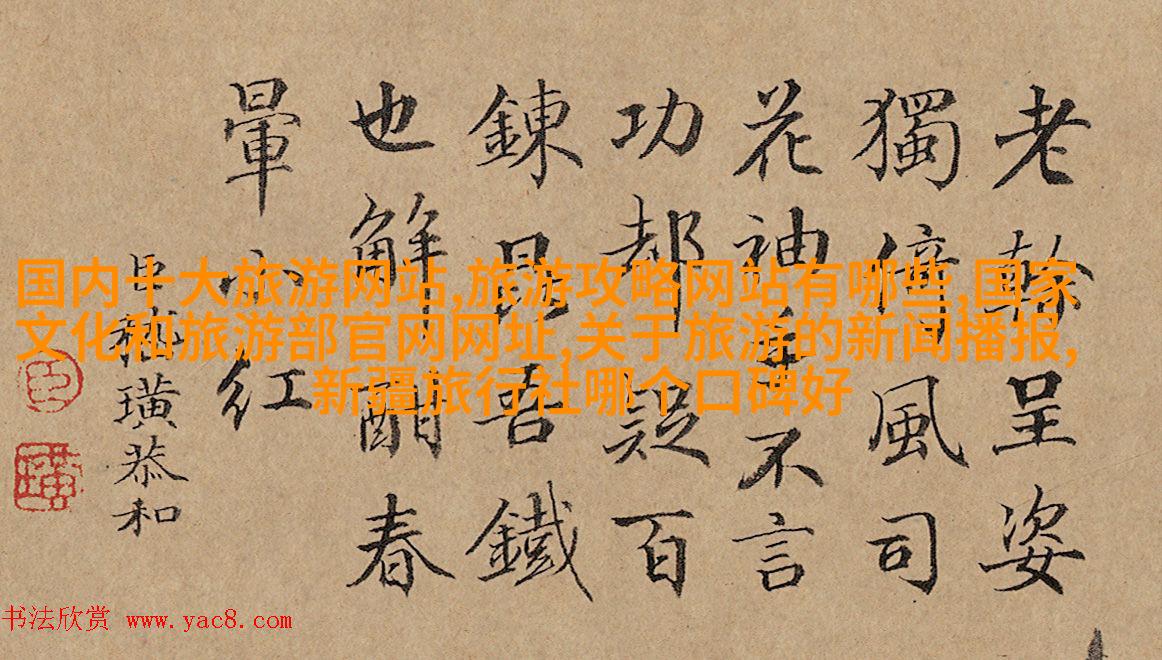 老幹呈姿
獨倚風司
花神不言
功都疑百
鍊昆吾鐵
也解酣春
暈小紅
臣嵇璜恭和
臣
璜
国内十大旅游网站,旅游攻略网站有哪些,国家
文化和旅游部官网网址,关于旅游的新闻播报,
新疆旅行社哪个口碑好
书法欣赏 www.yac8.com